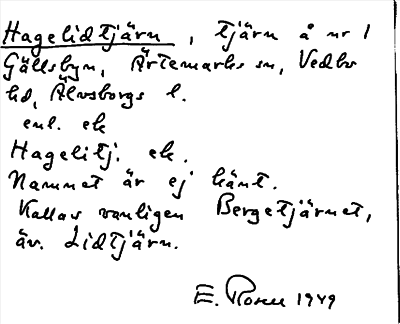 Hagelidtjärn, tjärn å nr 1
Gällsbyn, Ärtemarks sn, Vedbo
hd, Älvsborgs l.
enl. ek
Hagelitj. ek.
Namnet är ej känt.
Kallas vanligen Bergetjärnet,
äv. Lidtjärn.
E. Rosell 1949